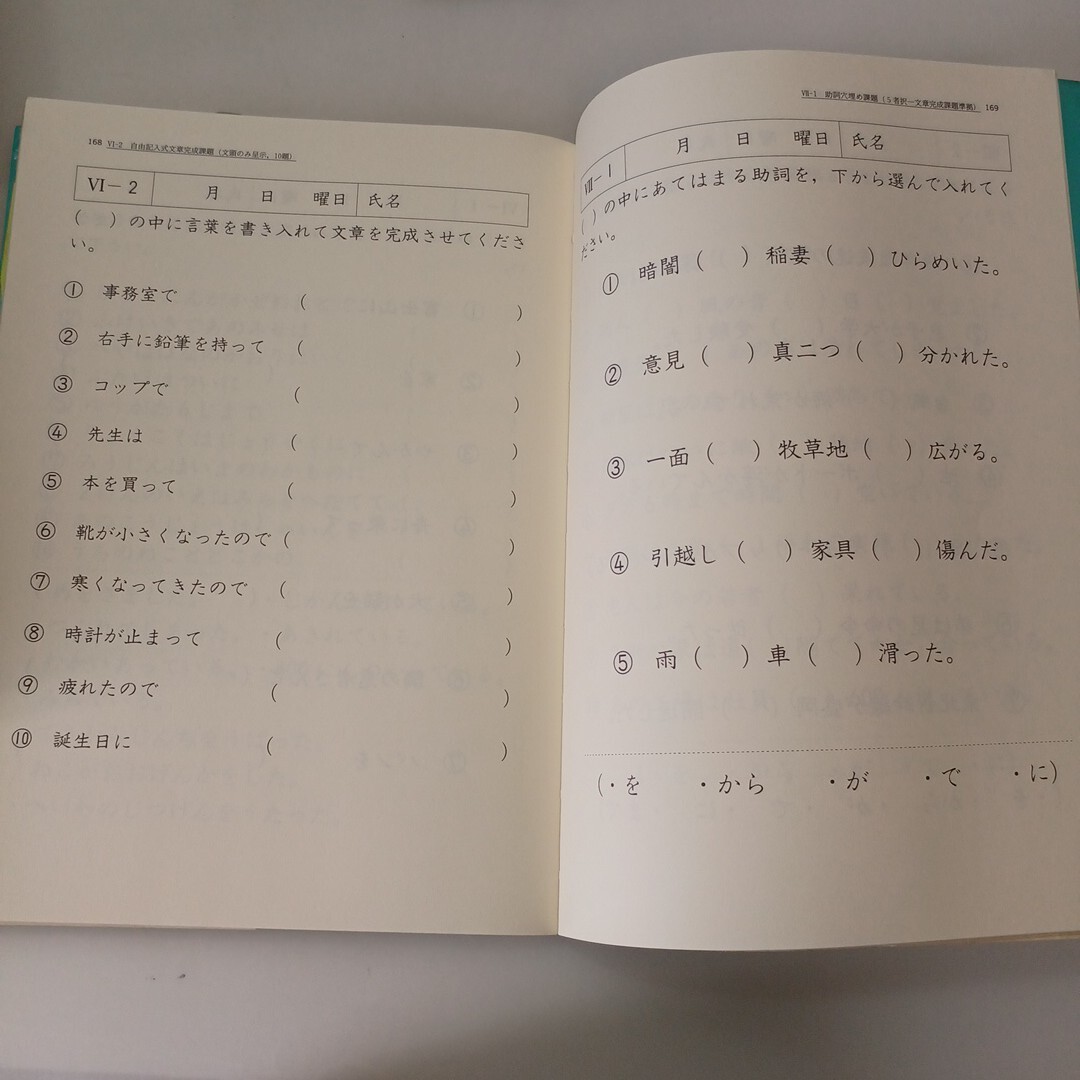 168 VI-2 自由記入式文章完成課題（文頭のみ呈示，10題）
VI－2 月 日 曜日 氏名
（ ）の中に言葉を書き入れて文章を完成させてくださ
い。
① 事務室で （ ）
② 右手に鉛筆を持って （ ）
③ コップで （ ）
④ 先生は （ ）
⑤ 本を買って （ ）
⑥ 靴が小さくなったので（ ）
⑦ 寒くなってきたので （ ）
⑧ 時計が止まって （ ）
⑨ 疲れたので （ ）
⑩ 誕生日に （ ）
VII-1 助詞穴埋め課題（5者択一文章完成課題準拠） 169
VII－1 月 日 曜日 氏名
（ ）の中にあてはまる助詞を，下から選んで入れてく
ださい。
① 暗闇（ ）稲妻（ ）ひらめいた。
② 意見（ ）真二つ（ ）分かれた。
③ 一面（ ）牧草地（ ）広がる。
④ 引越し（ ）家具（ ）傷んだ。
⑤ 雨（ ）車（ ）滑った。
（・を ・から ・が ・で ・に）